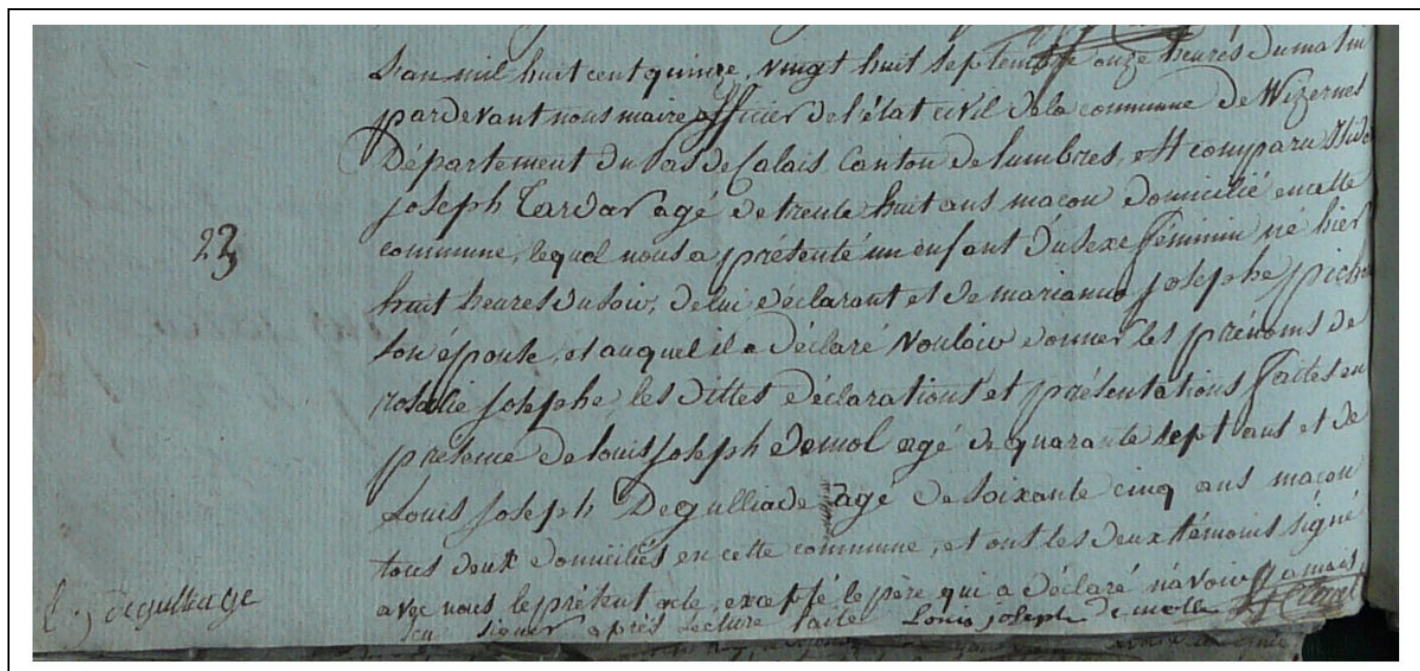 L'an mil huit cent quinze, vingt huit septembre onze heures du matin
pardevant nous maire officier de l'état civil de la commune de Wizernes
Département du Pas de Calais Canton de lumbres, est comparu
joseph Tardar agé de trente huit ans macon domicilié en cette
commune, lequel nous a présenté un enfant du sexe féminin né hier
23
huit heures du soir, de lui déclarant et de marianne josephe pich
son épouse, et auquel il a déclaré vouloir donner les prénoms de
rosalie josephe, les dittes déclarations et présentations faites en
présence de louis joseph demol agé de quarante sept ans et de
Louis joseph Degulliade agé de soixante cinq ans macon
tous deux domiciliés en cette commune, et ont les deux témoins signé
avec nous le présent acte, excepté le père qui a déclaré n'avoir jamais
su signer après lecture faite Louis joseph demolle